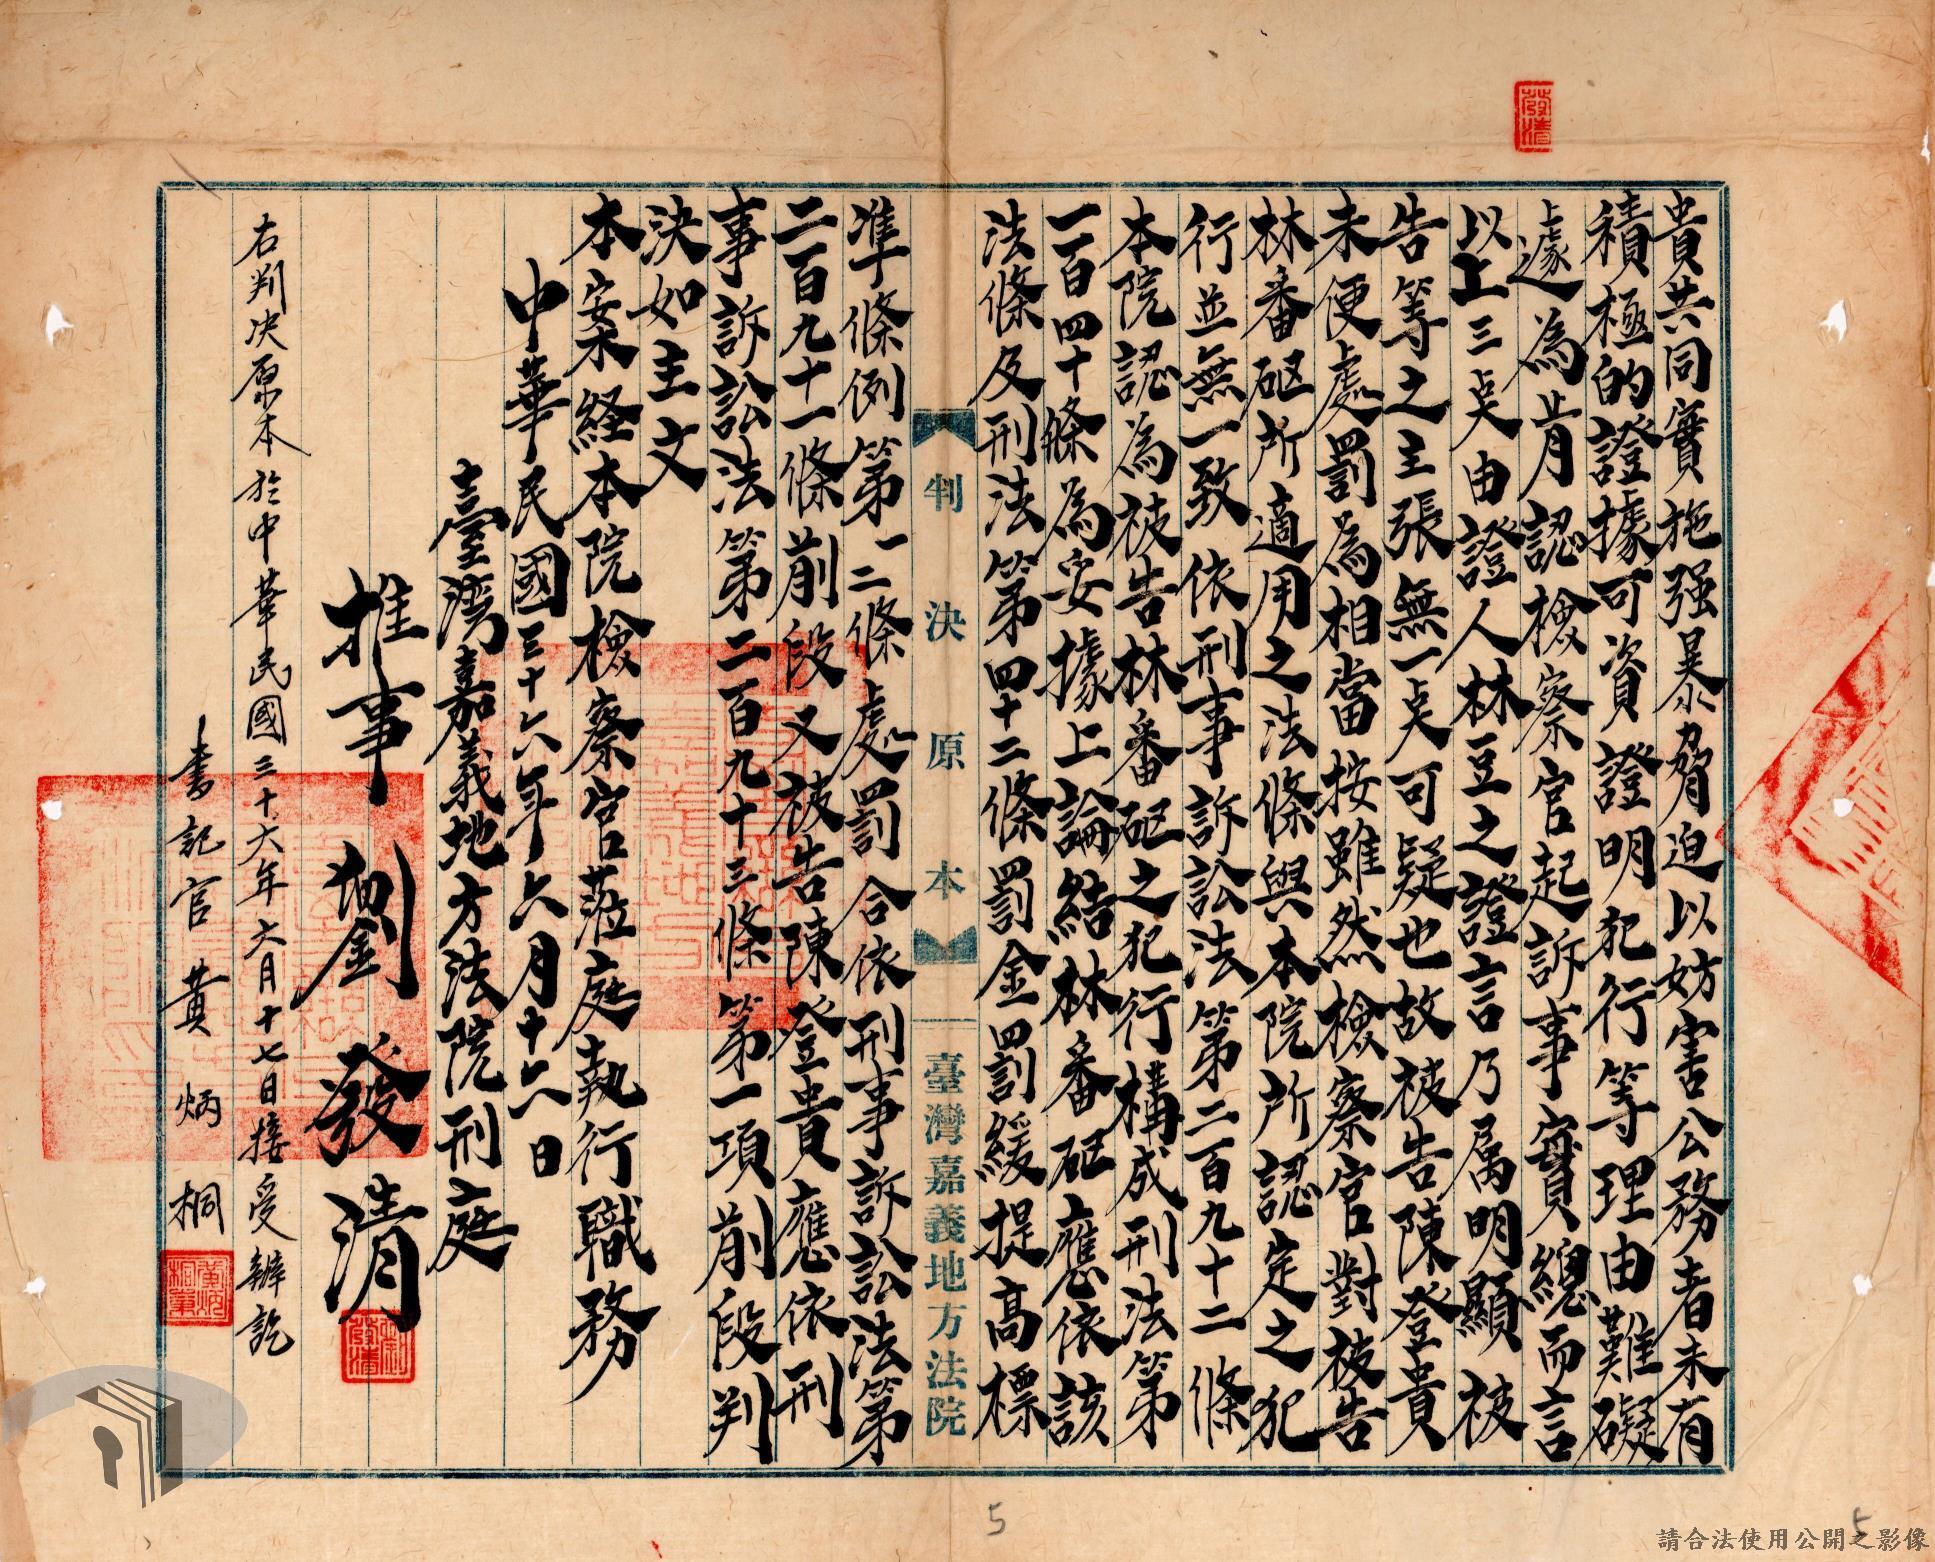 貴共同實施强暴脅迫以妨害公務者未有
積極的證據可資證明犯行等理由難礙
遽為肯認檢察官起訴事實總而言
以上三点由證人林豆之證言乃属明顯被
告等之主張無一点可疑也故被告陳登貴
未便處罰為相當按雖然檢察官對被告
林番砸所適用之法條與本院所認定之犯
行並無一致依刑事訴訟法第二百九十二條
本院認為被告林番砸之犯行構成刑法第
一百四十條為妥據上論結林番砸應依該
法條及刑法第四十二條罰金罰緩提高標
判決原本
臺灣嘉義地方法院
準條例第一二條處罰合依刑事訴訟法第
二百九十一條前段又被告陳登貴應依刑
事訴訟法第二百九十三條第一項前段判
決如主文
本案経本院檢察官蒞庭執行職務
中華民國三十六年六月十六日
臺灣嘉義地方法院刑庭
推事劉發清
右判決原本於中華民國三十六年六月十七日接受辦訖
書記官黃炳桐
發清
劉發清
黃炳桐章
5
5
請合法使用公開之影像